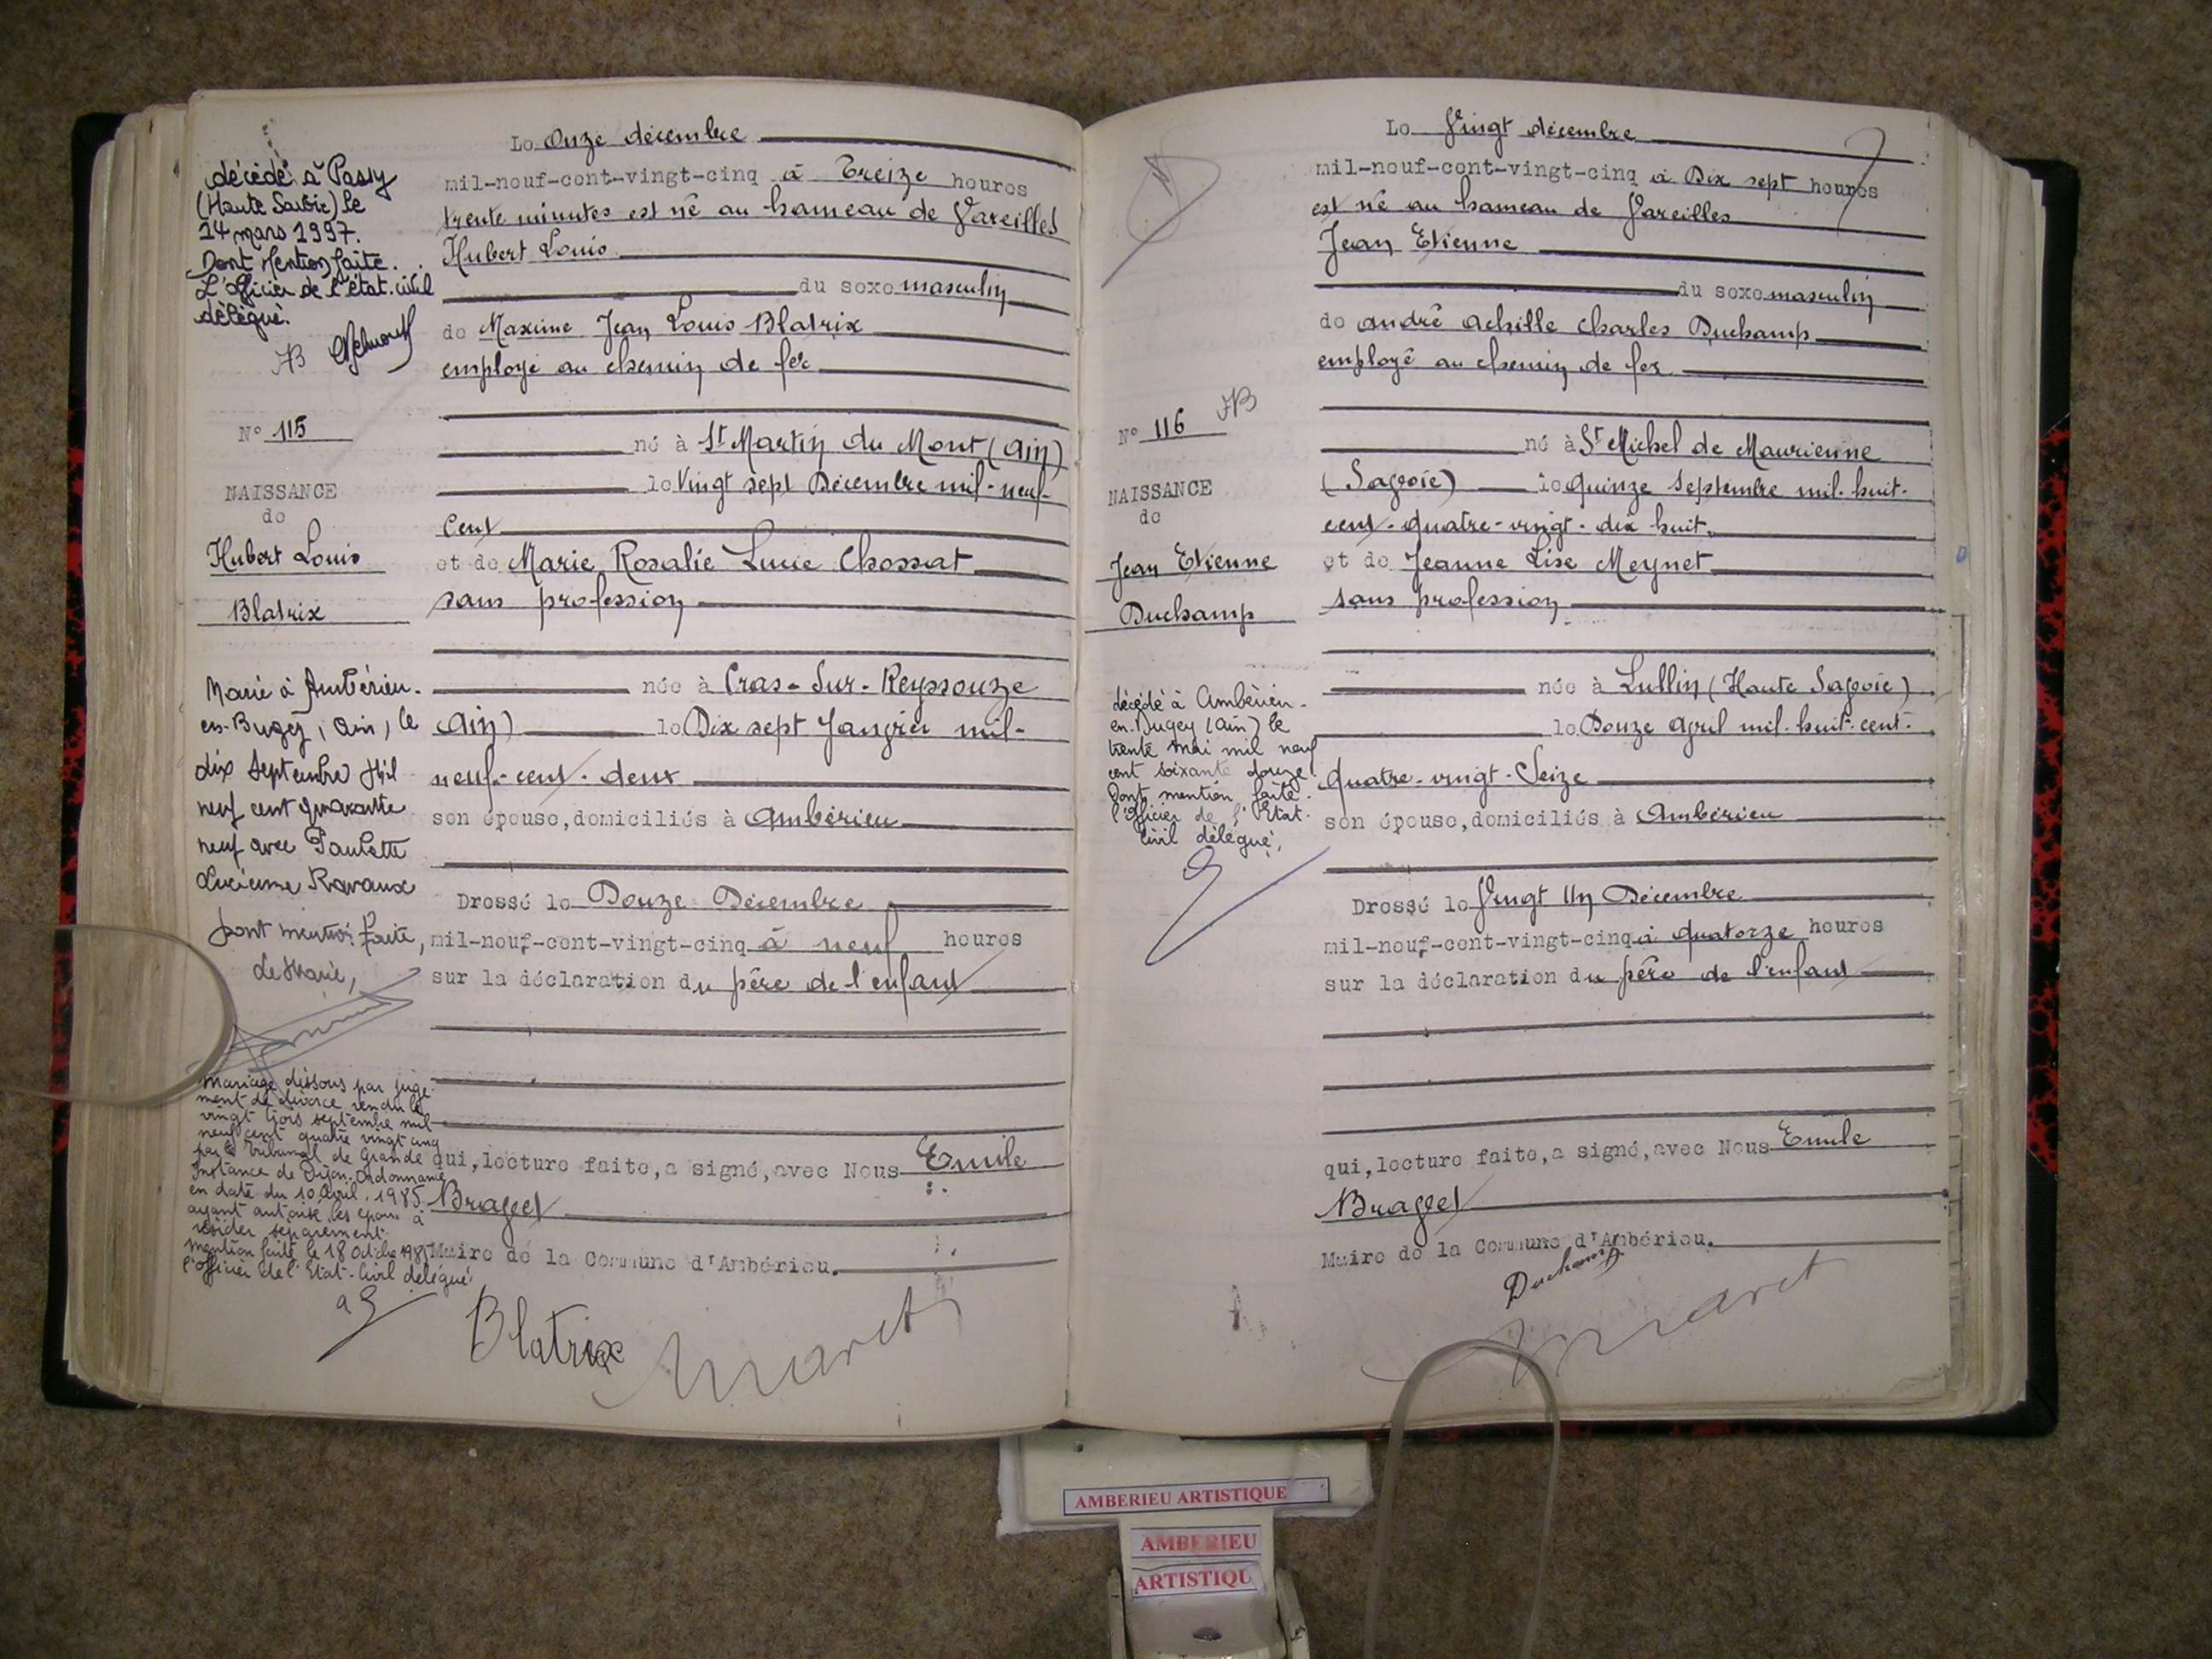 Le Onze décembre
mil-neuf-cent-vingt-cinq à Treize heures
trente minutes est né au hameau de Vareilles
Hubert Louis
du sexe masculin
de Maxime Jean Louis Blatrix
employé au chemin de fer
né à St Martin du Mont (Ain)
le Vingt sept Décembre mil-neuf-
cent
et de Marie Rosalie Lucie Chossat
sans profession
née à Cras-Sur-Reyssouze
Ain) le Dix sept Janvier mil-
neuf-cent-deux
son épouse, domiciliés à Ambérieu
Dressé le Douze Décembre
mil-neuf-cent-vingt-cinq à neuf heures
sur la déclaration du père de l'enfant
qui, lecture faite, a signé, avec Nous Emile
Bravet
Maire de la Commune d'Ambérieu.
Blatrix
décédé à Passy
(Haute Savoie) le
14 mars 1997.
Dont Mention faite.
L'officier de l'état-civil
délégué.
N° 115
NAISSANCE
de
Hubert Louis
Blatrix
Marié à Ambérieu-
en-Bugey, Ain, le
dix Septembre Mil
neuf cent quarante
neuf avec Paulette
Lucienne Ravaux
dont mention faite,
Le Maire,
Mariage dissous par juge-
ment de divorce rendu le
vingt trois septembre mil
neuf cent quatre vingt cinq
par le Tribunal de Grande
Instance de Dijon. Ordonnance
en date du 10 Avril 1985
ayant autorisé les époux à
résider séparément.
Mention faite le 18 Octobre 1985
l'Officier de l'Etat-Civil délégué
Le Vingt décembre
mil-neuf-cent-vingt-cinq à Dix sept heures
est né au hameau de Vareilles
Jean Etienne
du sexe masculin
de André Achille Charles Duchamp
employé au chemin de fer
né à St Michel de Maurienne
(Savoie) le quinze Septembre mil-huit-
cent-quatre-vingt-dix huit
et de Jeanne Lise Meynet
sans profession
née à Lullin (Haute Savoie)
le Douze Avril mil-huit-cent-
quatre-vingt-Seize
son épouse, domiciliés à Ambérieu
Dressé le Vingt un Décembre
mil-neuf-cent-vingt-cinq à quatorze heures
sur la déclaration du père de l'enfant
qui, lecture faite, a signé, avec Nous Emile
Bravet
Maire de la Commune d'Ambérieu.
Duchamp
N° 116
NAISSANCE
de
Jean Etienne
Duchamp
décédé à Ambérieu-
en-Bugey (Ain) le
trente mai mil neuf
cent soixante douze.
Dont mention faite.
l'Officier de l'Etat-
Civil délégué,
AMBERIEU ARTISTIQUE
AMBERIEU
ARTISTIQU